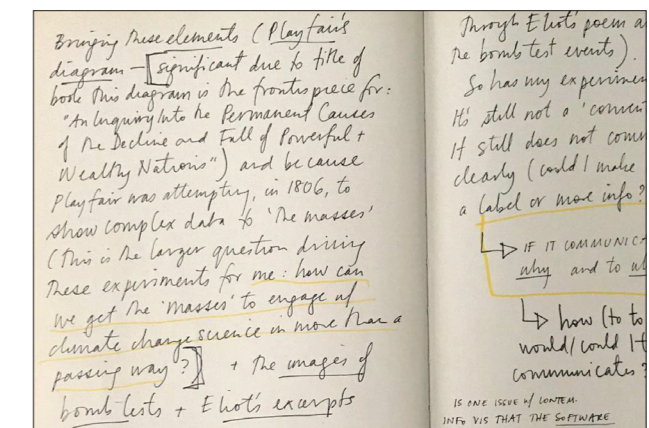 Bringing these elements (Playfair's
diagram — significant due to title of
book this diagram is the frontispiece for:
"An Inquiry Into the Permanent Causes
of the Decline and Fall of Powerful +
Wealthy Nations") and because
Playfair was attempting, in 1806, to
show complex data to 'the masses'
(this is the larger question driving
these experiments for me: how can
we get the 'masses' to engage w/
climate change science in more than a
passing way?] + the images of
bomb tests + Eliot's excerpts
through Eliot's poem a
the bomb test events).
So has my experimen
It's still not a 'conven
It still does not comm
clearly (could I make
a label or more info?
IF IT COMMUNICA
why and to w
how (to to
would/could it
communicates?
IS ONE ISSUE w/ CONTEM.
INFO VIS THAT THE SOFTWARE